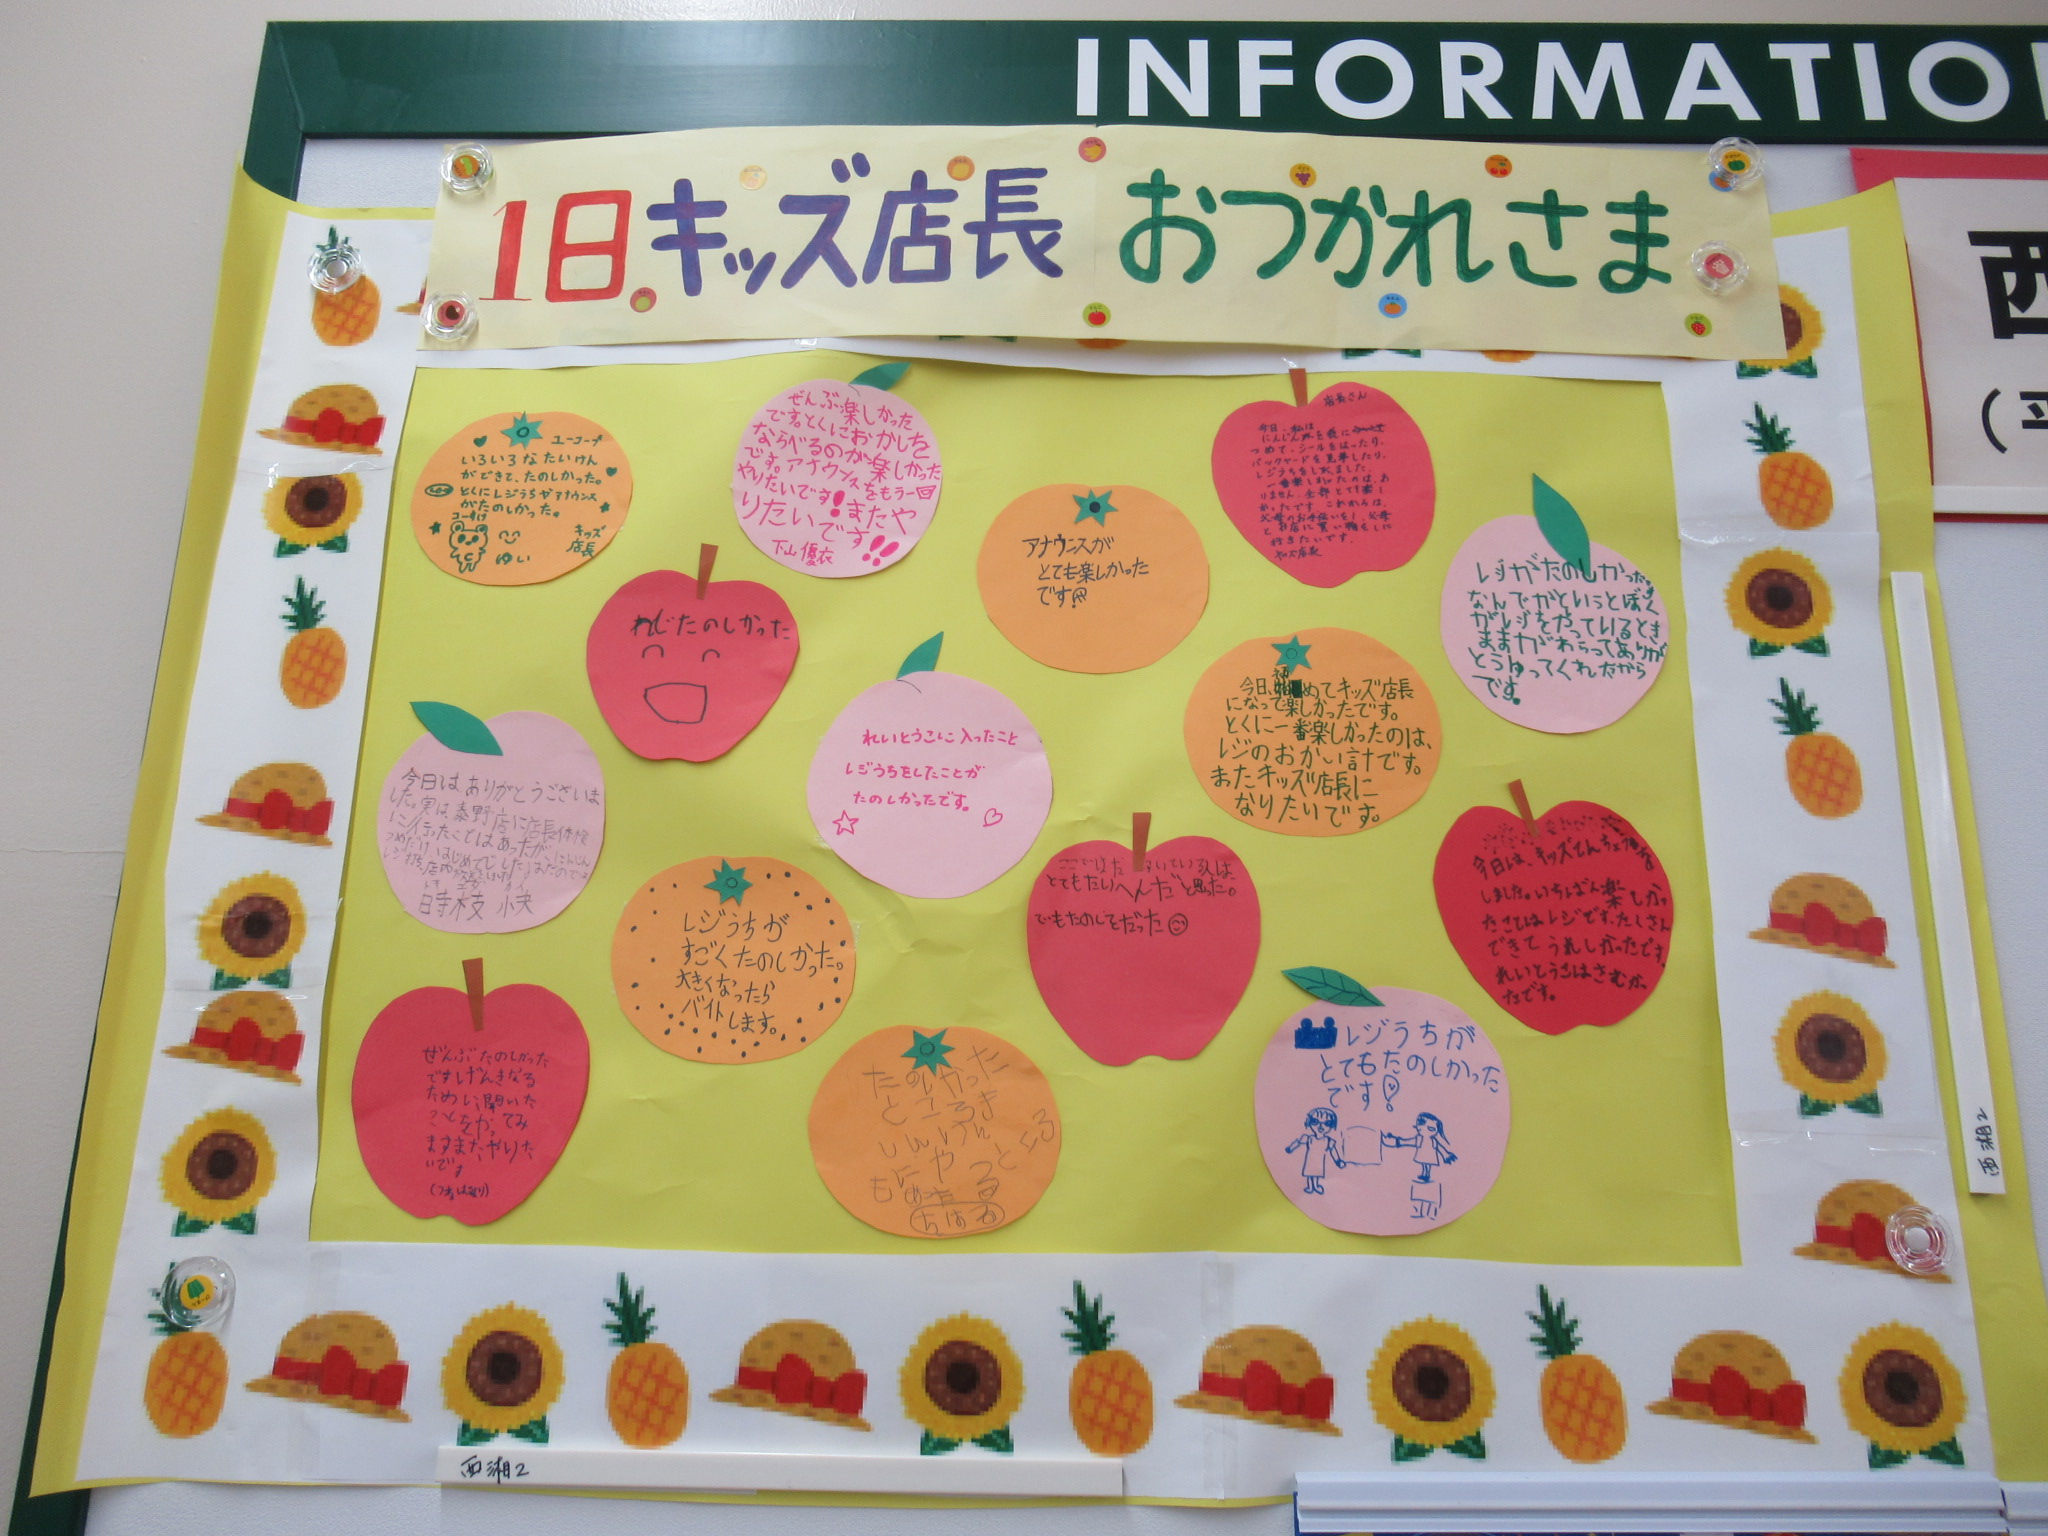 INFORMATIO
1日キッズ店長 おつかれさま
西
ユーコープ
いろいろなたいけん
ができて、たのしかった。
とくにレジうちやアナウンス
がたのしかった。
ゆい
キッズ
店長
ぜんぶ楽しかった
です。とくにおかしを
ならべるのが楽しかった
です。アナウンスをもう一回
やりたいです!またや
りたいです!!
下山 優衣
アナウンスが
とても楽しかった
です!
店長さん
今日、私は
にんじんを袋に
つめて、シールをはったり、
バックヤードを見学したり、
レジうちをしました。
一番楽しかったのは、あ
りません。全部とても楽し
かったです。これからは、
父母のお手伝いをし、父母
とお店に買い物をしに
行きたいです。
キッズ店長
レジがたのしかった。
なんでかというとぼく
がレジをやっているとき
ままがわらってありが
とうゆってくれたから
です。
れじたのしかった
れいとうこに入ったこと
レジうちをしたことが
たのしかったです。
今日、初めてキッズ店長
になって楽しかったです。
とくに一番楽しかったのは、
レジのおかい計です。
またキッズ店長に
なりたいです。
今日はありがとうございま
した。実は秦野店に店長体験
に行ったことはあったが、にんじん
つめだけはじめてでした
レジうちがすごくたのしかった。
大きくなったら
バイトします。
とてもたいへんだと思った。
でもたのしそだった
今日は、キッズてんちょう
しました。いちばん楽しかっ
たことはレジです。たくさん
できてうれしかったです。
れいとうこはさむかっ
たです。
ぜんぶたのしかった
です
ために聞いた
ことをやってみ
ますまたやりた
いです
たのしかった
ところ
ちはる
レジうちが
とてもたのしかった
です!
西湘2
西湘2